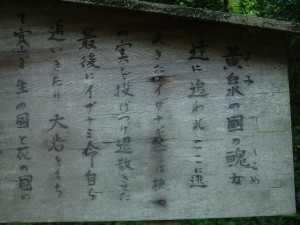 黄泉の国の醜女
達に追われここに逃
きたイザナギ命は桃
の実を投げつけ退散さた
最後にイザナミ命自ら
追いきたり大岩をもち
て塞ぎ生の国と死の国の